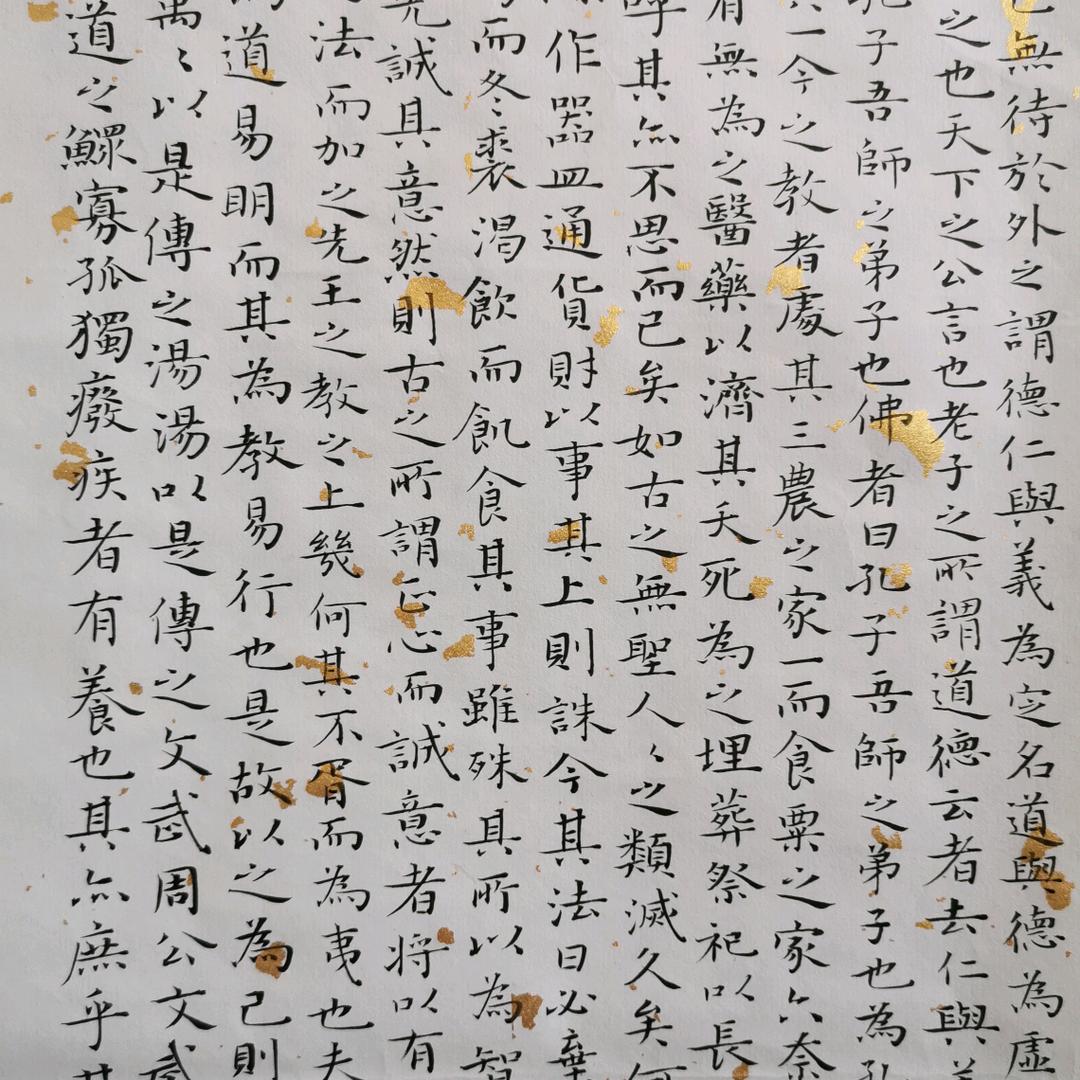 無待於外之謂德仁與義為定名道與德為虛
之也天下之公言也老子之所謂道德云者去仁與
孔子吾師之弟子也佛者曰孔子吾師之弟子也為孔
其一今之教者處其三農之家一而食粟之家六奈
有無為之醫藥以濟其夭死為之埋葬祭祀以長
呼其亦不思而已矣如古之無聖人〻之類滅久矣何
作器皿通貨財以事其上則誅今其法曰必棄
而冬裘渴飲而飢食其事雖殊其所以為智
先誠其意然則古之所謂正心而誠意者將以有
法而加之先王之教之上幾何其不胥而為夷也夫
道易明而其為教易行也是故以之為己則
禹〻以是傳之湯湯以是傳之文武周公文武
道之鰥寡孤獨廢疾者有養也其亦庶乎其